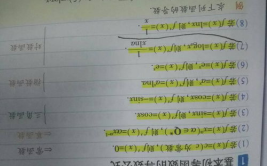 1 基本初等函数的导数公式
(1) 若f(x)=c(c为常数), 则f'(x)=0.
(2) 若f(x)=xᵅ(α∈Q), 则f'(x)=αxᵅ⁻¹.
(3) 若f(x)=sinx, 则f'(x)=cosx.
(4) 若f(x)=cosx, 则f'(x)=-sinx
(5) 若f(x)=aˣ, 则f'(x)=aˣlna
(6) 若f(x)=eˣ, 则f'(x)=eˣ.
(7) 若f(x)=logₐx, 则f'(x)=1/xlna.
(8) 若f(x)=lnx, 则f'(x)=1/x.
例 求下列函数的导数.